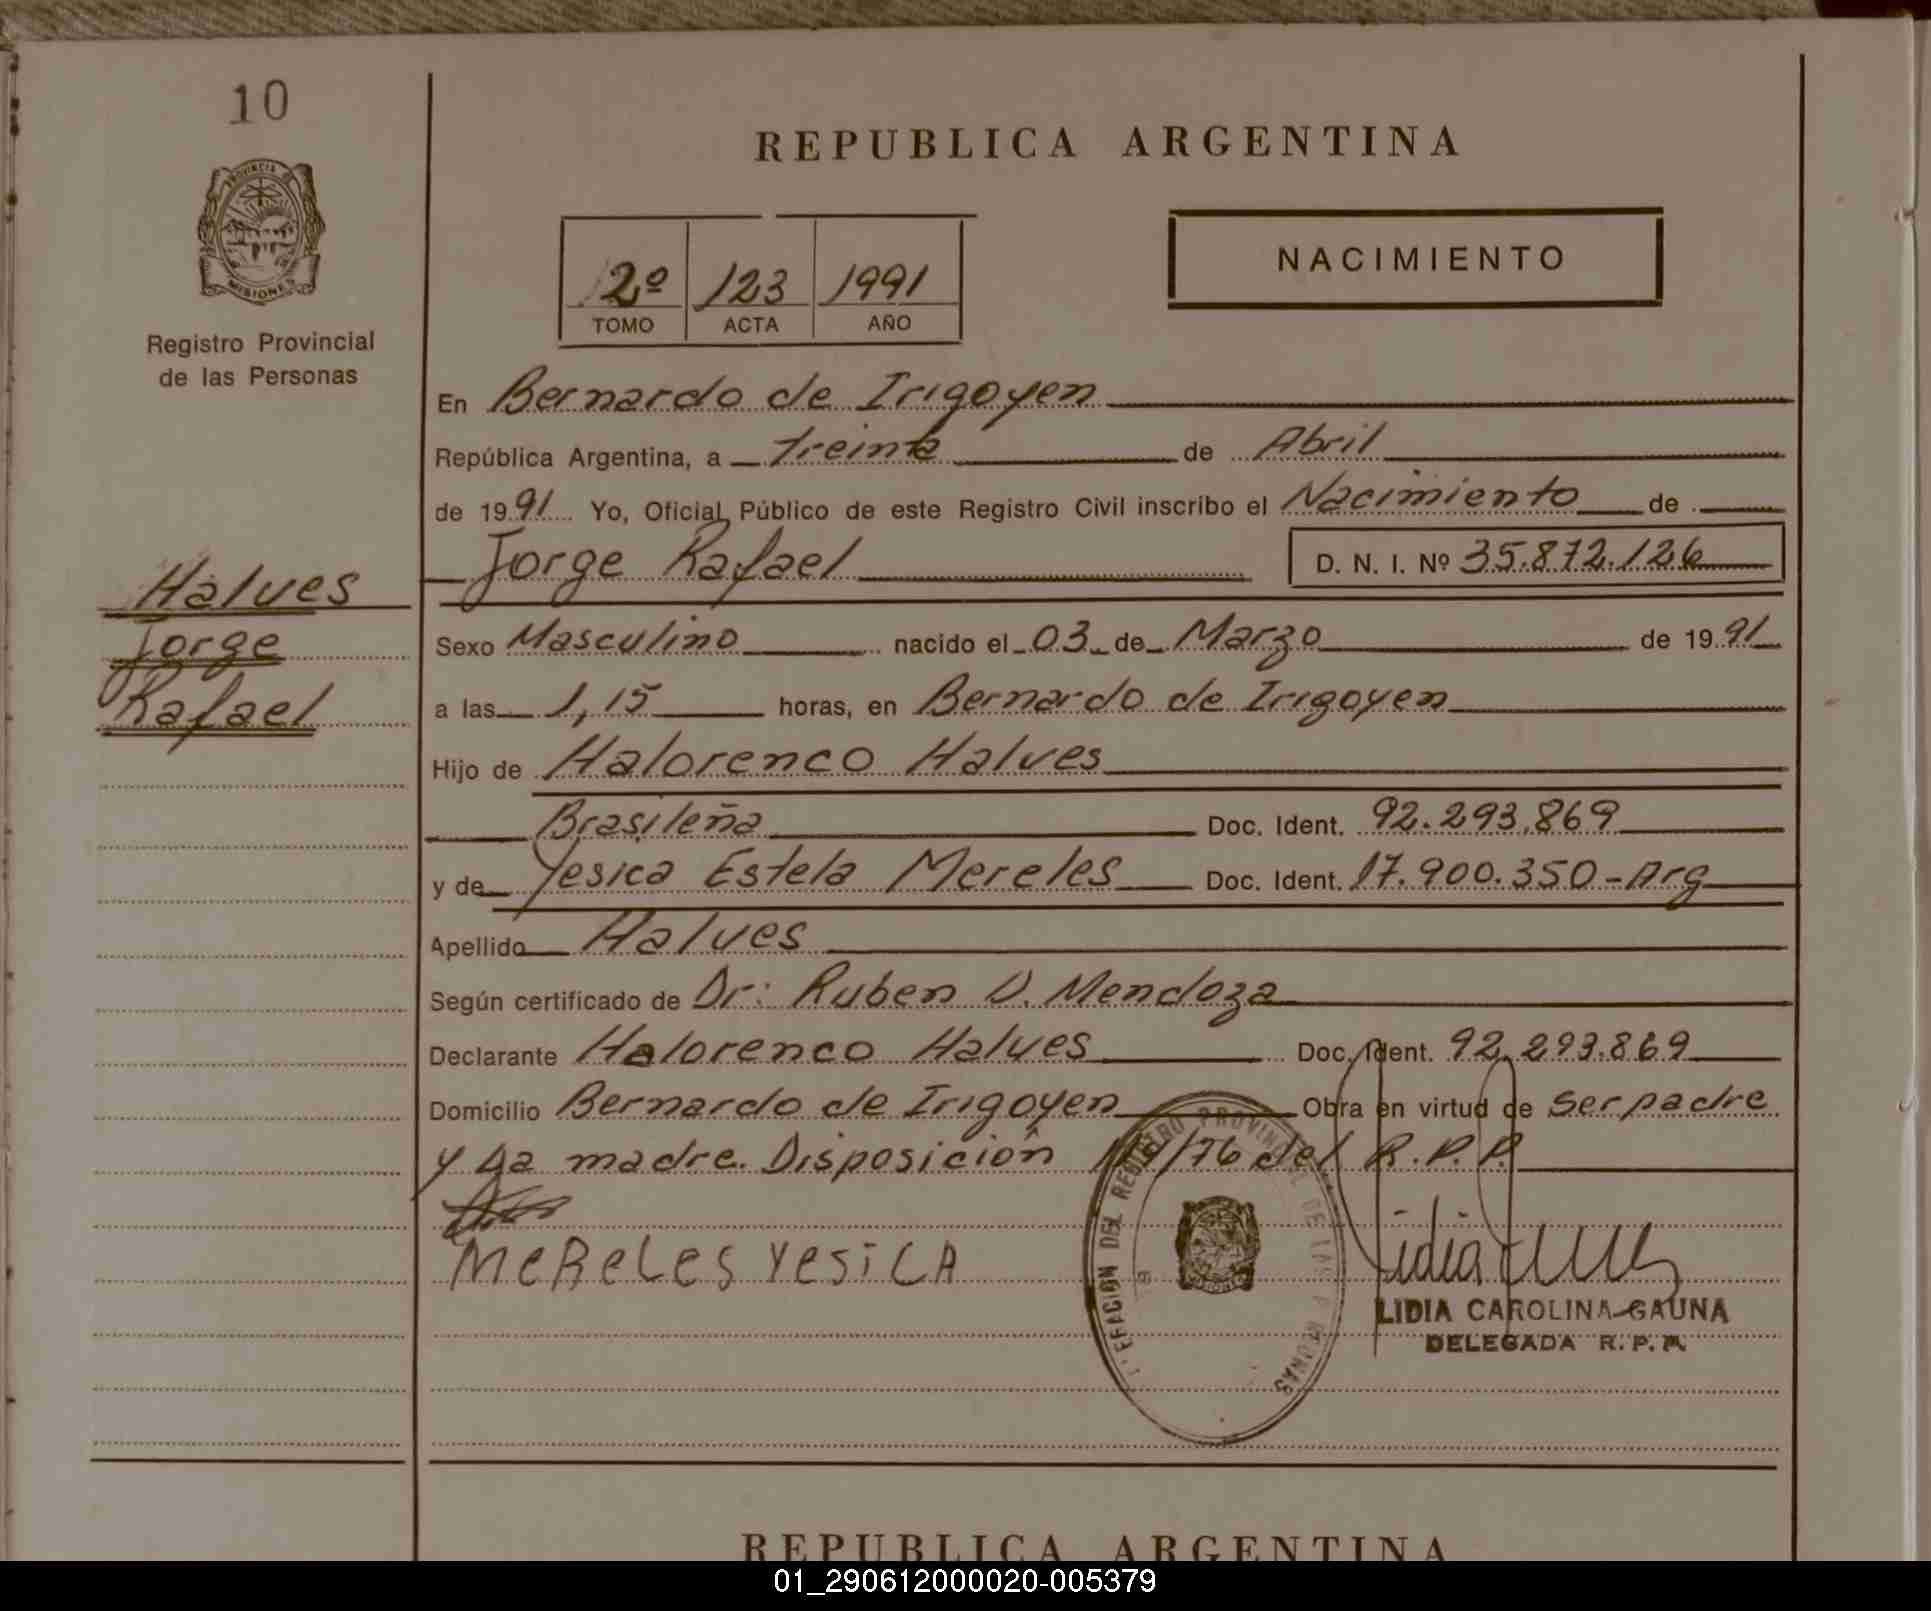 10
REPUBLICA ARGENTINA
PROVINCIA
MISIONES
Registro Provincial
de las Personas
2º 123 1991
TOMO ACTA AÑO
NACIMIENTO
En Bernardo de Irigoyen
República Argentina, a treinta de Abril
de 1991 Yo, Oficial Público de este Registro Civil inscribo el Nacimiento de
Jorge Rafael D. N. I. Nº 35.872.126
Halves
Jorge
Rafael
Sexo Masculino nacido el 03 de Marzo de 1991
a las 1,15 horas, en Bernardo de Irigoyen
Hijo de Halorenco Halves
Brasileña Doc. Ident. 92.293.869
y de Yesica Estela Mereles Doc. Ident. 17.900.350-Arg
Apellido Halves
Según certificado de Dr: Ruben D. Mendoza
Declarante Halorenco Halves Doc. Ident. 92.293.869
Domicilio Bernardo de Irigoyen Obra en virtud de ser padre
y la madre. Disposición /76 del R.P.P.
MeReLes YesiCA
DEL REGISTRO PROVINCIAL DE LAS PERSONAS
LIDIA CAROLINA GAUNA
DELEGADA R. P. P.
REPUBLICA ARGENTINA
01_290612000020-005379